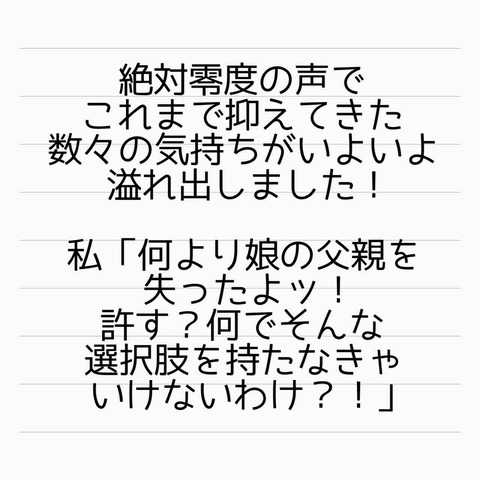 絶対零度の声で
これまで抑えてきた
数々の気持ちがいよいよ
溢れ出しました！
私「何より娘の父親を
失ったよッ！
許す？何でそんな
選択肢を持たなきゃ
いけないわけ？！」